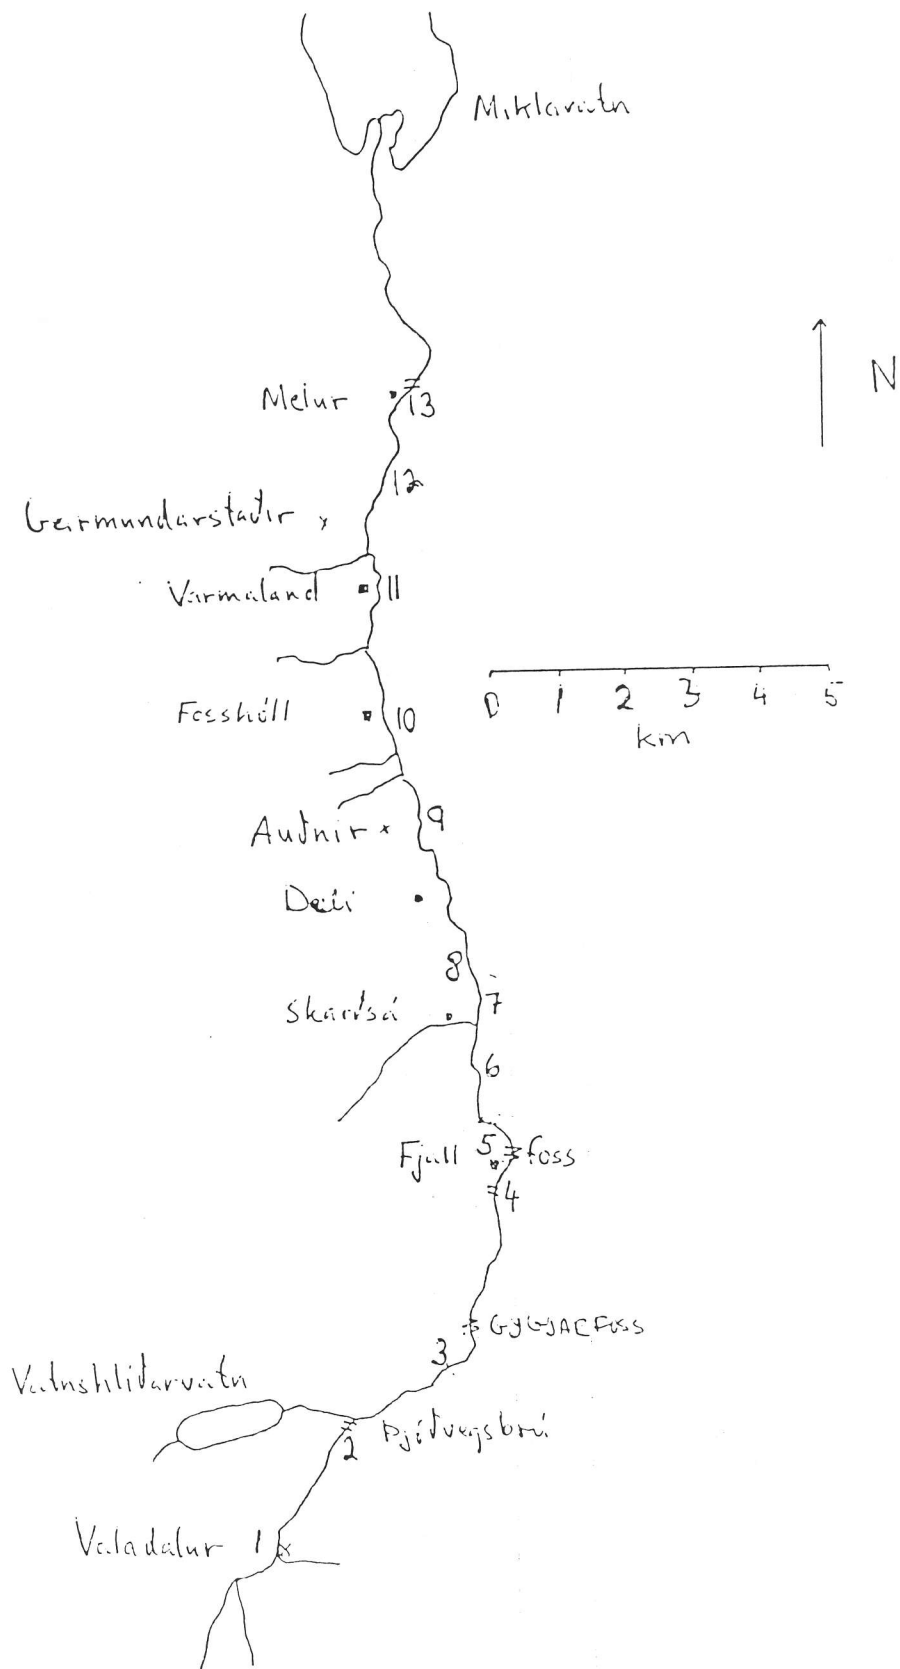 Miklavatn
N
Melur
13
12
Geirmundarstaðir
Varmaland
11
0 1 2 3 4 5
km
Fosshóll
10
9
Auðnir
Dæli
8
7
Skarðsá
6
Fjall
5
foss
4
GYGJARFOSS
3
Vatnshlíðarvatn
Þjóðvegsbrú
2
Valadalur
1